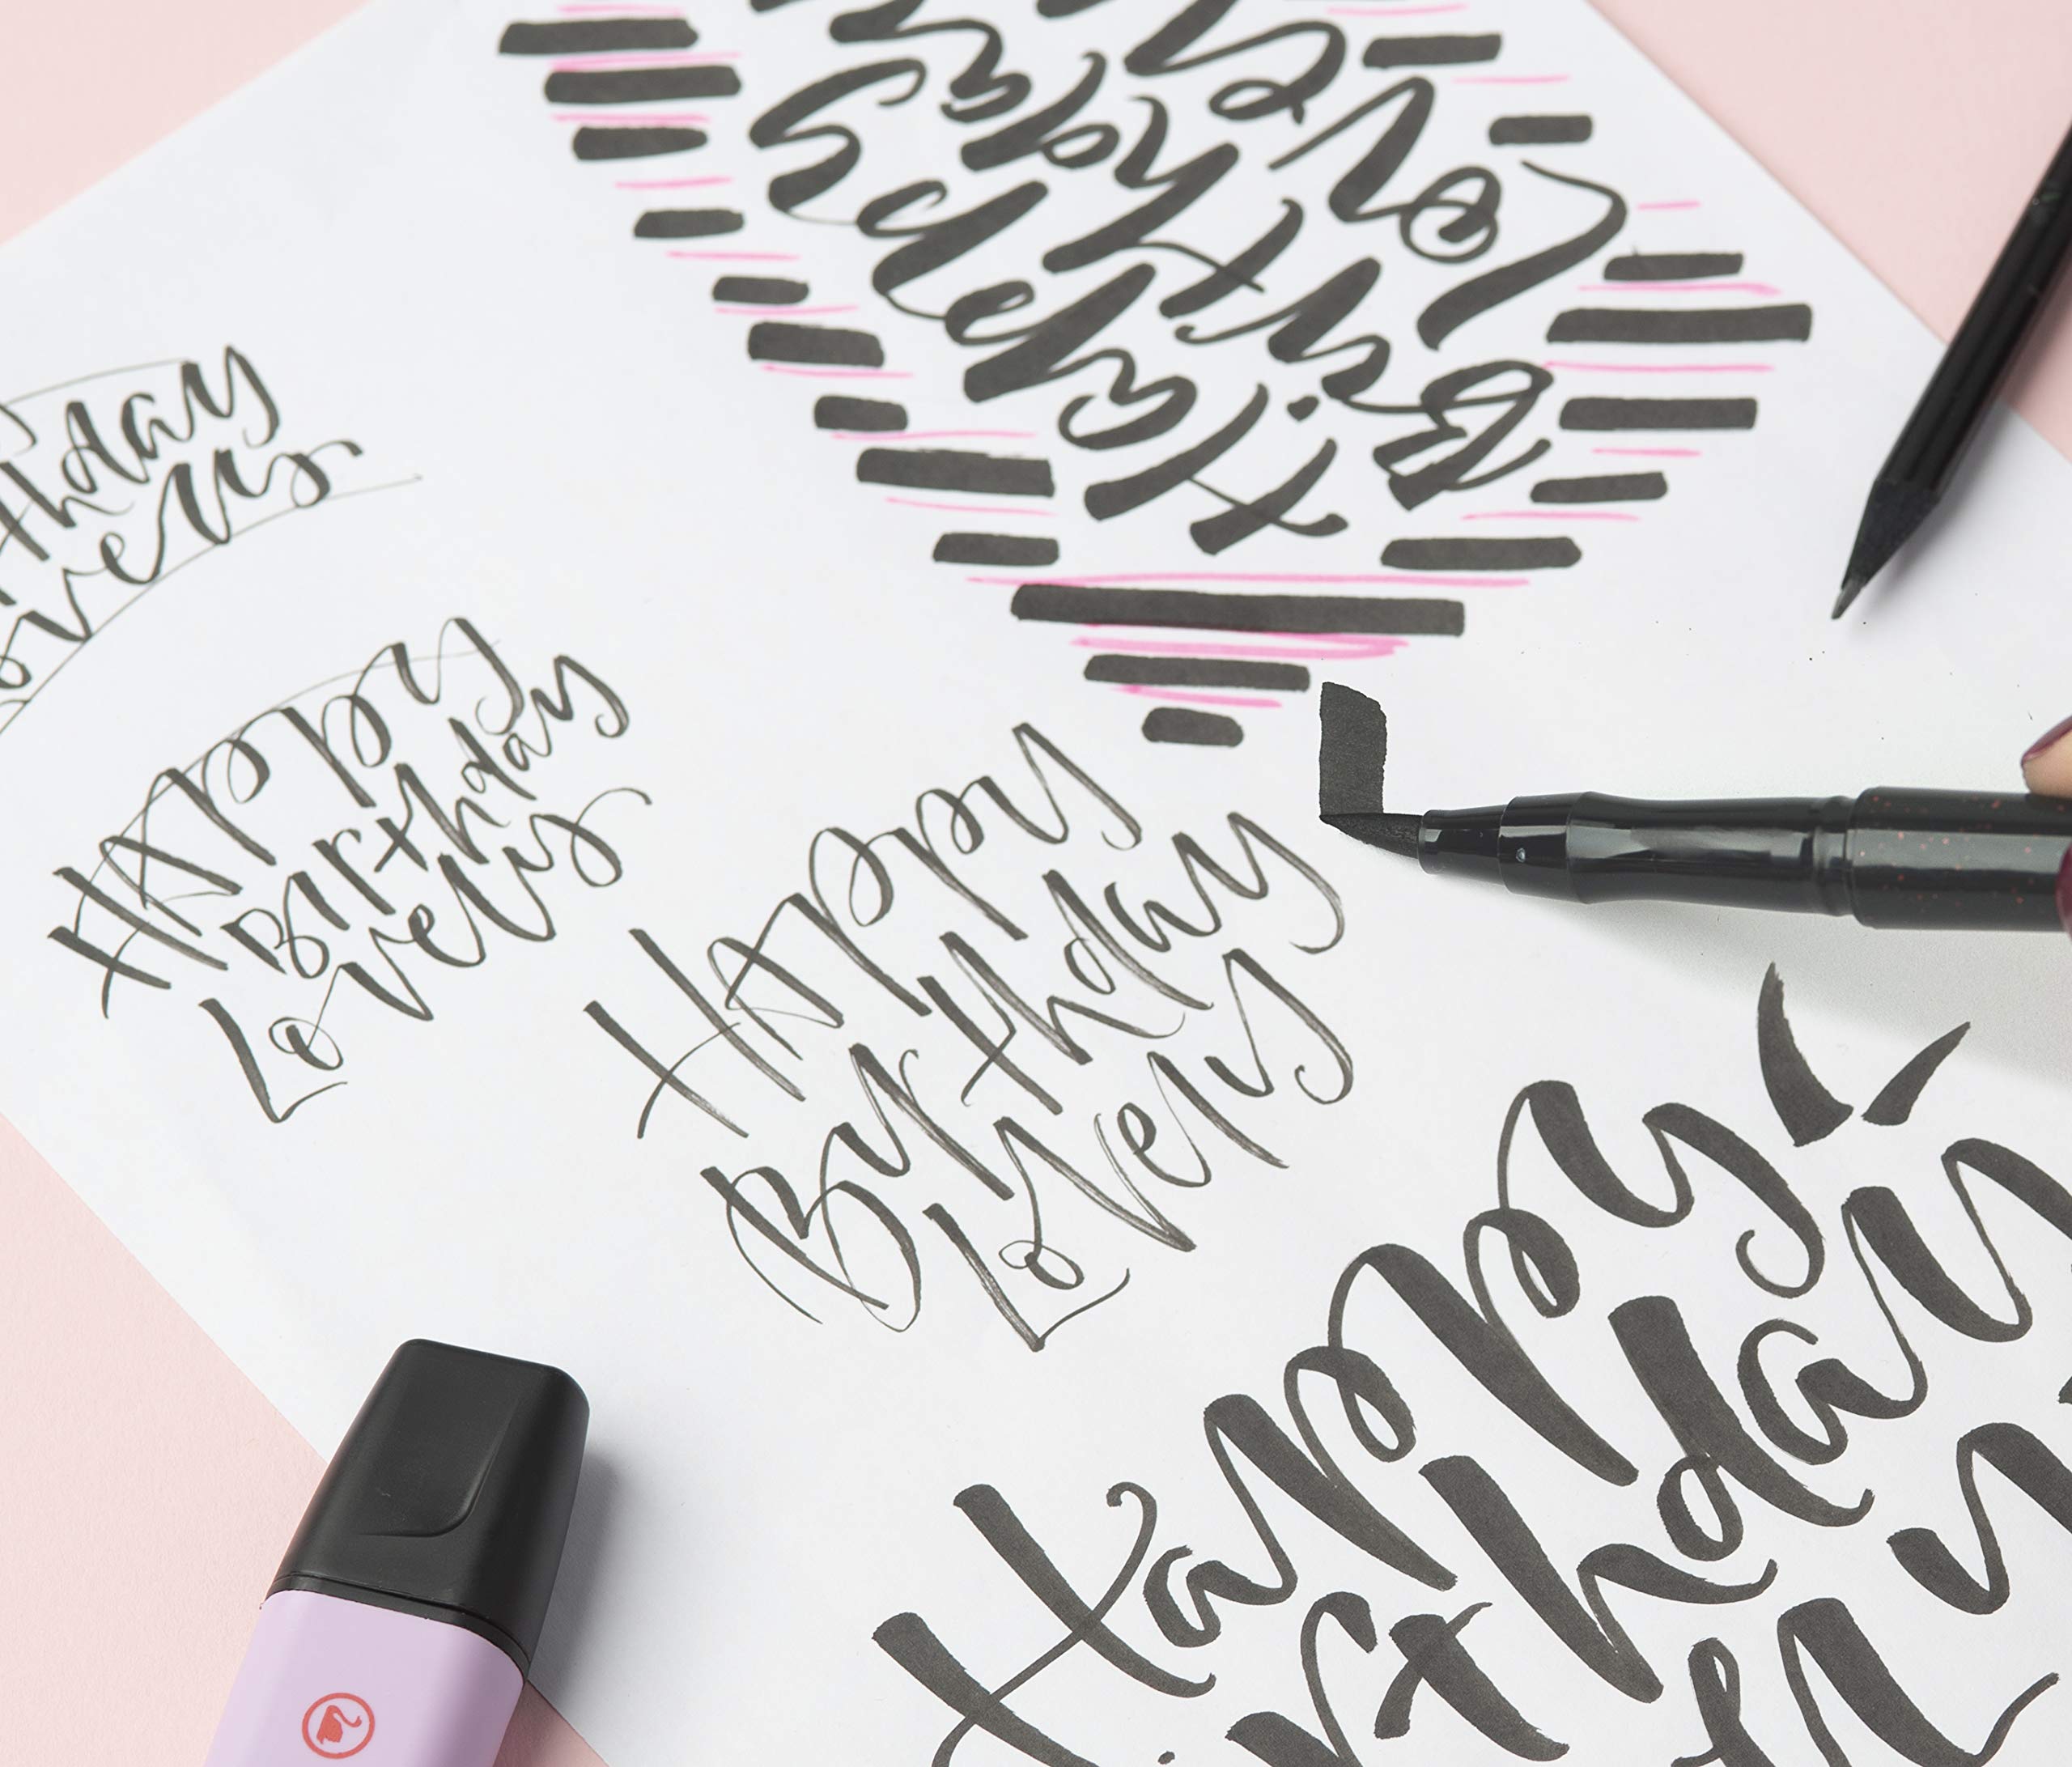 Happy
Birthday
Lovely
thday
HAppy
Birthday
Lovely
HAppy
Birthday
Lovely
Happy
irthday